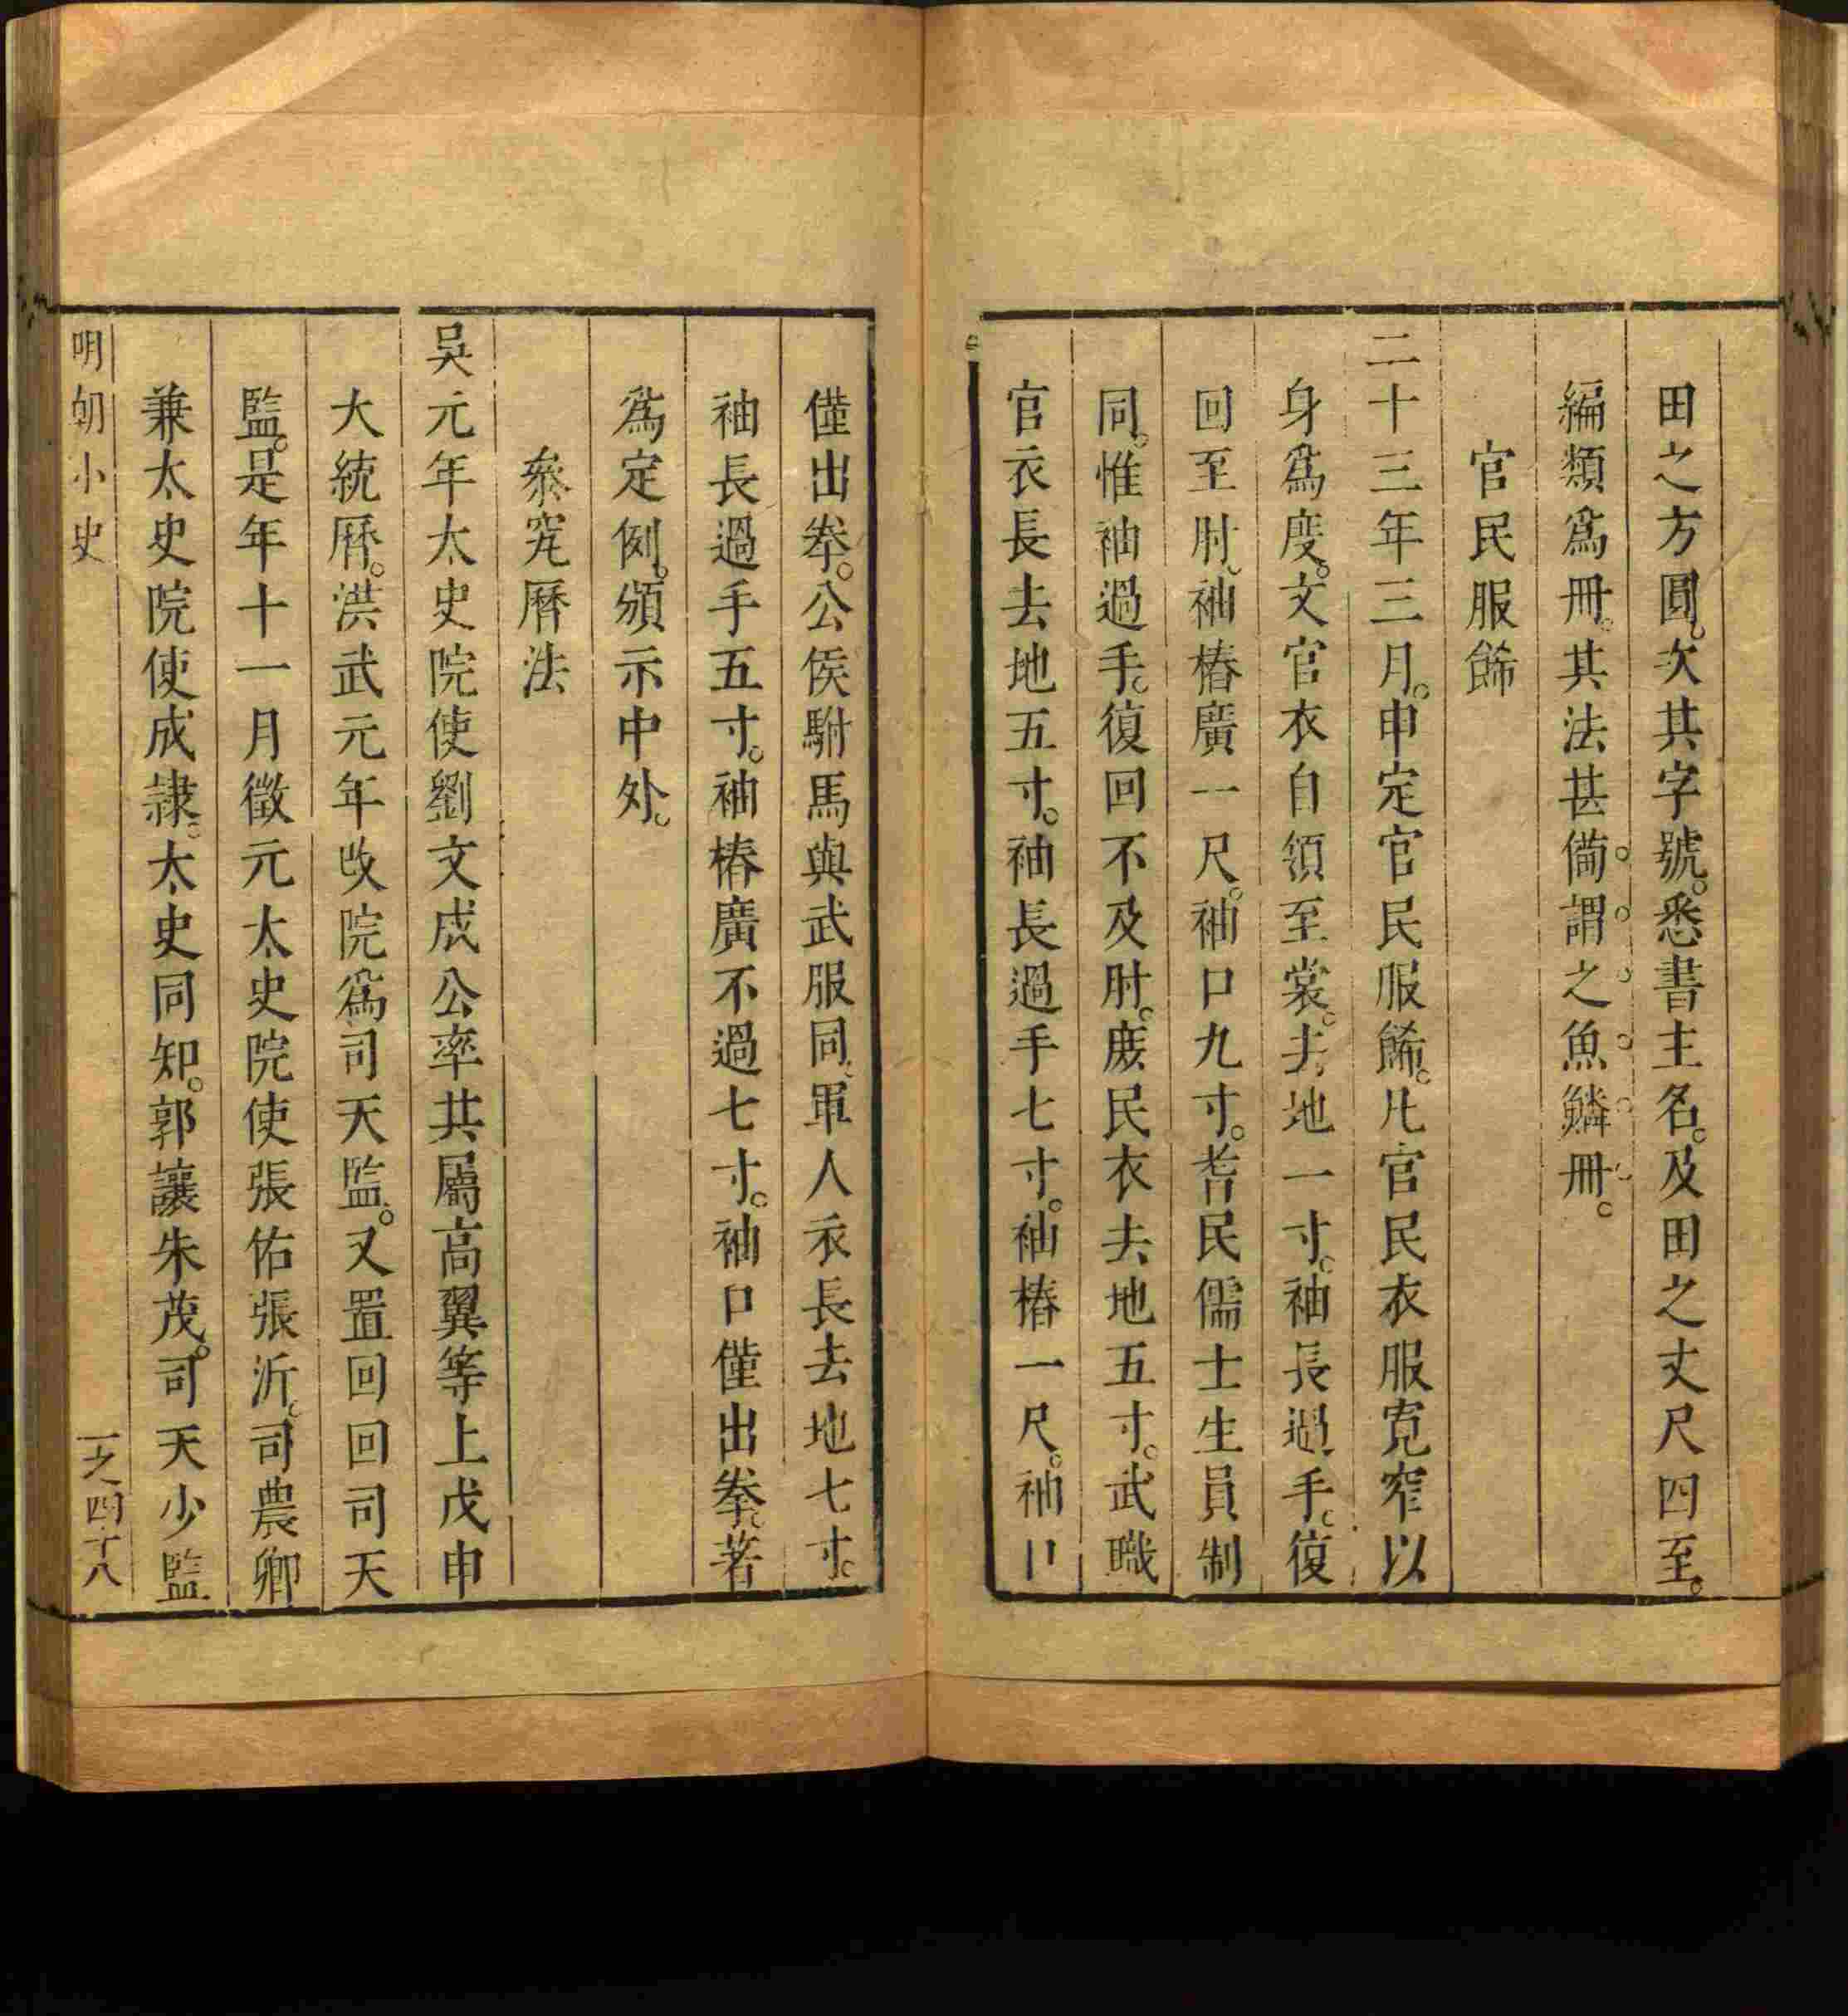 田之方圓。次其字號。悉書主名。及田之丈尺四至。
編類爲冊。其法甚備謂之魚鱗冊。
官民服餙
二十三年三月。申定官民服餙。凡官民衣服寬窄以
身爲度。文官衣自領至裳。去地一寸。袖長過手。復
回至肘。袖樁廣一尺。袖口九寸。耆民儒士生員制
同。惟袖過手。復回不及肘。庻民衣去地五寸。武職
官衣長去地五寸。袖長過手七寸。袖樁一尺。袖口
僅出拳。公侯駙馬與武服同。軍人衣長去地七寸。
袖長過手五寸。袖樁廣不過七寸。袖口僅出拳。著
爲定例。頒示中外。
叅究曆法
吳元年太史院使劉文成公率其屬高翼等上戊申
大統曆。洪武元年改院爲司天監。又置回回司天
監。是年十一月徵元太史院使張佑張沂。司農卿
兼太史院使成隷。太史同知。郭讓朱茂。司天少監
明朝小史
一之四十八